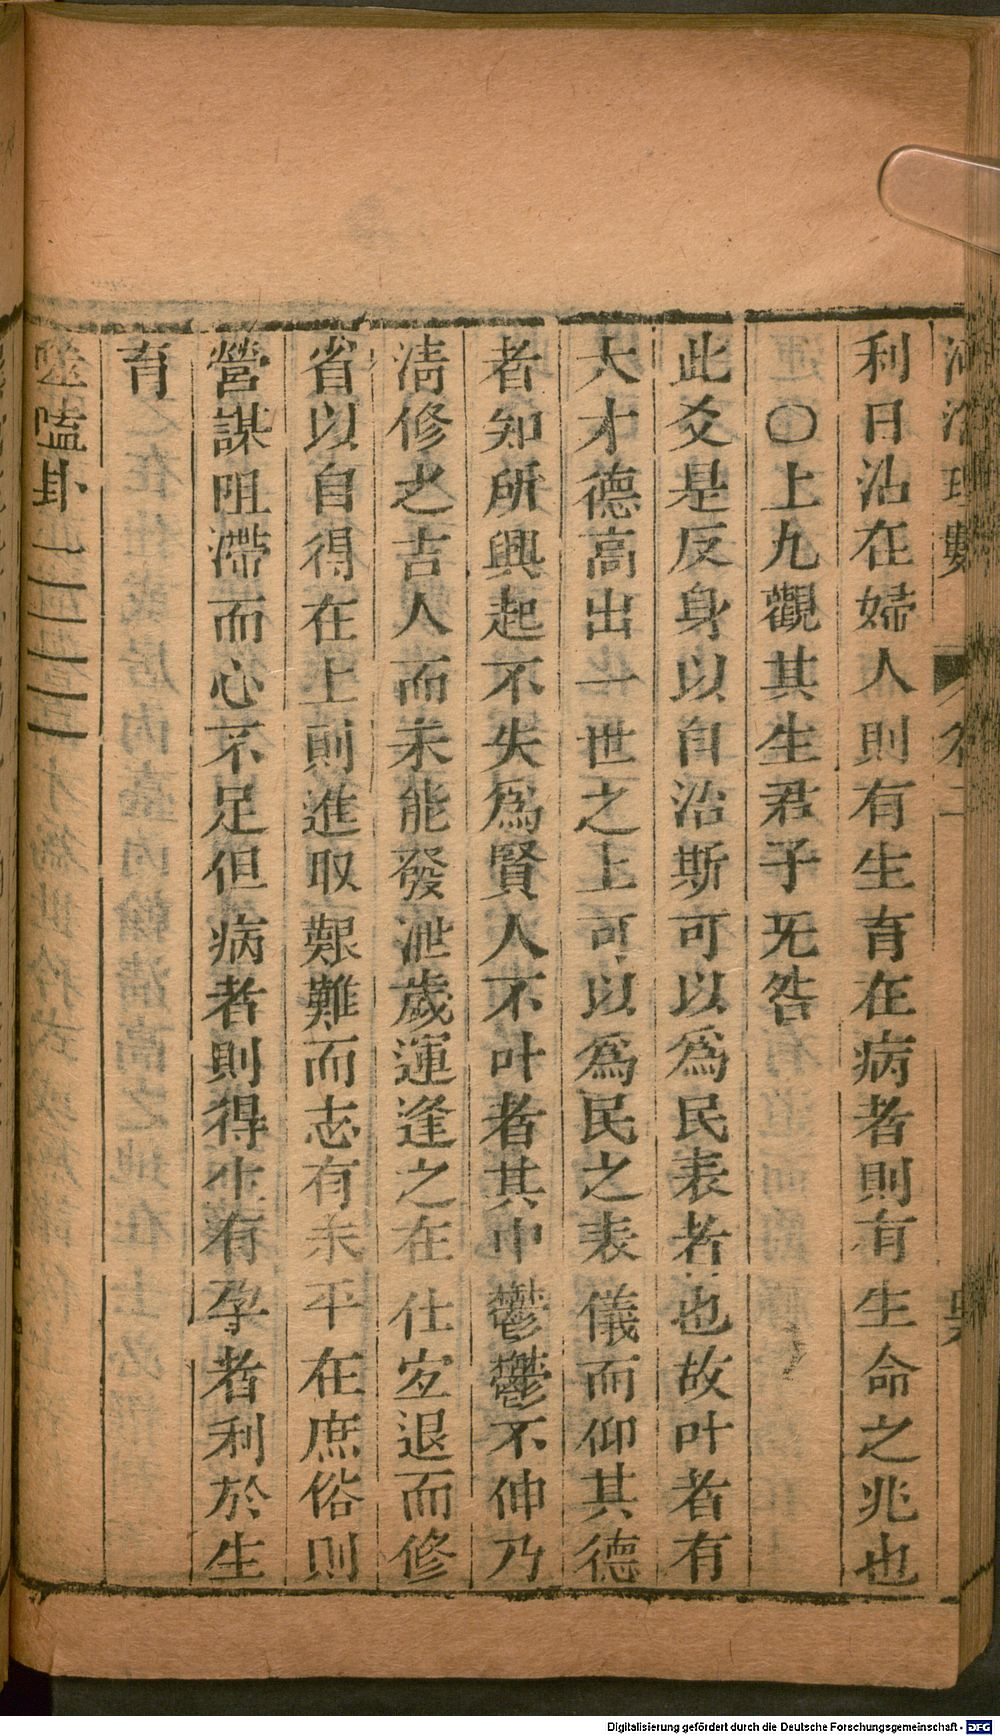 利日沾在婦人則有生育在病者則有生命之兆也
〇上九觀其生君子旡咎
此爻是反身以自治斯可以為民表者也故叶者有
大才德高出一世之上可以為民之表儀而仰其德
者知所興起不失為賢人不叶者其中鬱鬱不伸乃
淸修之吉人而未能發泄歲運逢之在仕宜退而修
省以自得在上則進取艱難而志有未平在庶俗則
營謀阻滯而心不足但病者則得生有孕者利於生
育
噬嗑卦
Digitalisierung gefördert durch die Deutsche Forschungsgemeinschaft - DFG